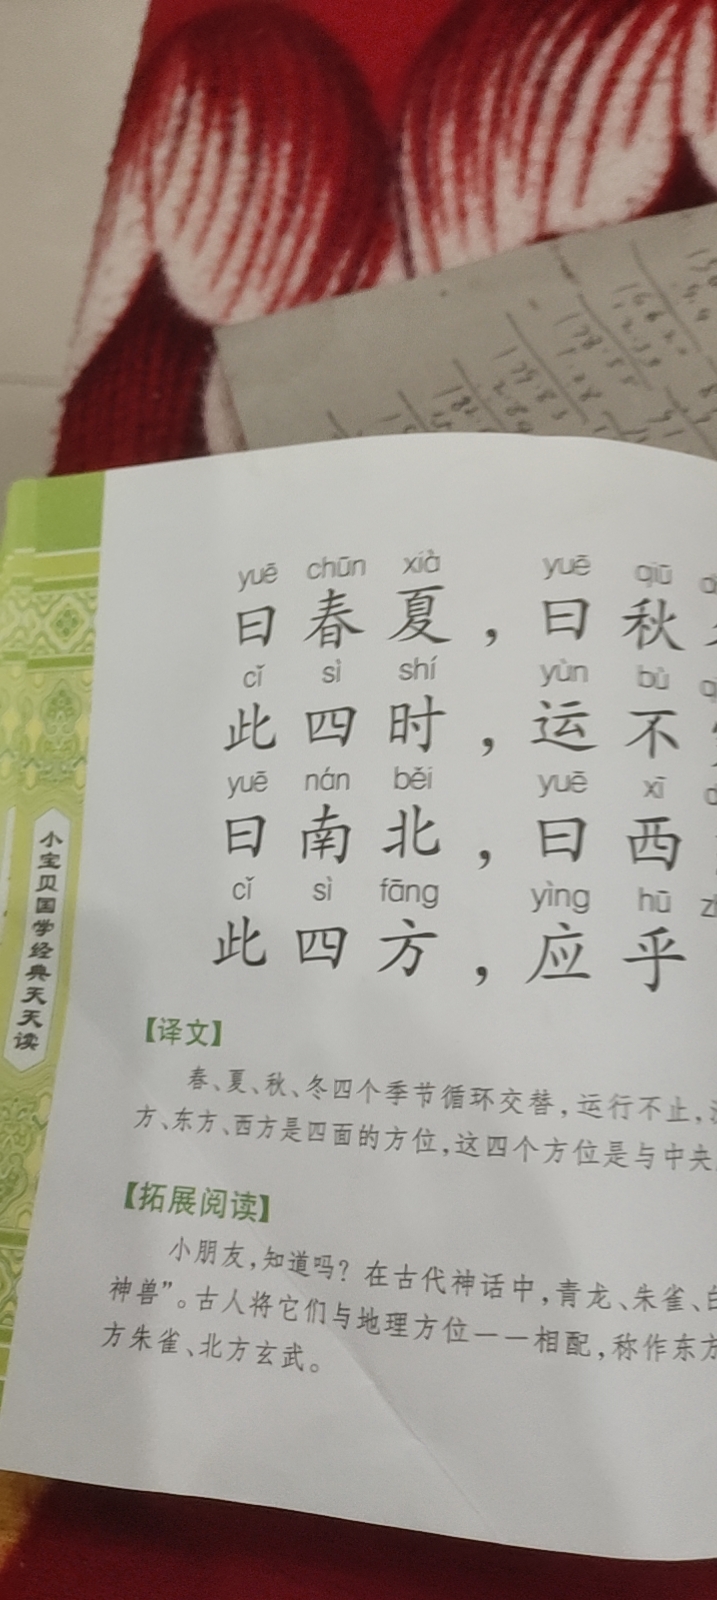 yuē chūn xià yuē qiū
曰春夏，曰秋
cǐ sì shí yùn bù
此四时，运不
yuē nán běi yuē xī
曰南北，曰西
cǐ sì fāng yìng hū
此四方，应乎
【译文】
春、夏、秋、冬四个季节循环交替，运行不止，
方、东方、西方是四面的方位，这四个方位是与中央
【拓展阅读】
小朋友，知道吗？在古代神话中，青龙、朱雀、
神兽”。古人将它们与地理方位一一相配，称作东方
方朱雀、北方玄武。
小宝贝国学经典天天读